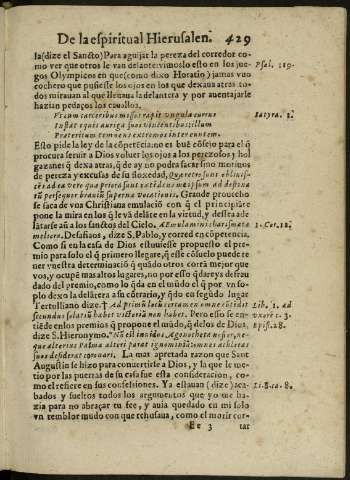 De la espiritual Hierusalen. 429
la (dize el Sancto) Para aguijar la pereza del corredor co-
mo ver que otros le van delante: vimoslo esto en los jue-
gos Olympicos en que (como dixo Horatio) jamas vuo
Psal. 119.
cochero que pusiesse los ojos en los que dexaua atras to-
dos mirauan al que lleuaua la delantera y por auentajarle
hazian pedaços los cauallos.
Vt cum carceribus missos rapit vngula currus
Satyra. 1.
Instat equis auriga suos vincentibus illum
Prateritum temnens extremos inter euntem.
Esto pide la ley de la cõpetẽcia: no es buẽ cõsejo para el q̃
procura seruir a Dios voluer los ojos a los perezosos y hol
gazanes q̃ dexa atras, q̃ de ay no podra sacar sino motiuos
de pereza y escusas de su floxedad, Quæ retro sunt obliuis-
cẽs ad ea vero quæ priora sunt extẽdens meipsum ad destina
tũ persequor brauiũ supernæ vocationis. Grande prouecho
se saca de vna Christiana emulaciõ con q̃ el principiãte
pone la mira en los q̃ le vã delãte en la virtud, y dessea ade
lãtarse aũ a los sanctos del Cielo. Æmulamini charismata
1. Cor. 12.
meliora. Desafiaos, dize S. Pablo, y corred en cõpetencia.
Como si en la casa de Dios estuuiesse propuesto el pre-
mio para solo el q̃ primero llegare, q̃ esse cõsuelo puede te
ner vuestra determinaciõ q̃ quãdo otros corrã mejor que
vos, y ocupẽ mas altos lugares, no por esso q̃dareys defrau
dado del premio, como lo q̃da en el mũdo el q̃ por vn so-
plo dexo la delãtera a su cõtrario, y q̃do en segũdo lugar
Tertulliano dize. † Ad primũ locũ certamen omne cõtẽdit
Lib. 1. ad
secundus solatiũ habet victoriã non habet. Pero esso se en-
vxorẽ c. 3.
tiẽde en los premios q̃ propone el mũdo, q̃ de los de Dios,
Epist. 28.
dize S. Hieronymo.
alterius Palma alteri parat ignominiã: omnes athletas
suos desiderat coronari. La mas apretada razon que Sant
Augustin se hizo para conuertirse a Dios, y la que le me-
tio por las puertas de su casa fue esta consideracion, co-
mo el refiere en sus confessiones. Ya estauan (dize) aca-
Li. 8. ca. 8.
bados y sueltos todos los argumentos que yo me ha-
zia para no abraçar tu fee, y auia quedado en mi solo
vn temblor mudo con que rehusaua, como el morir cor-
Ee 3 tar